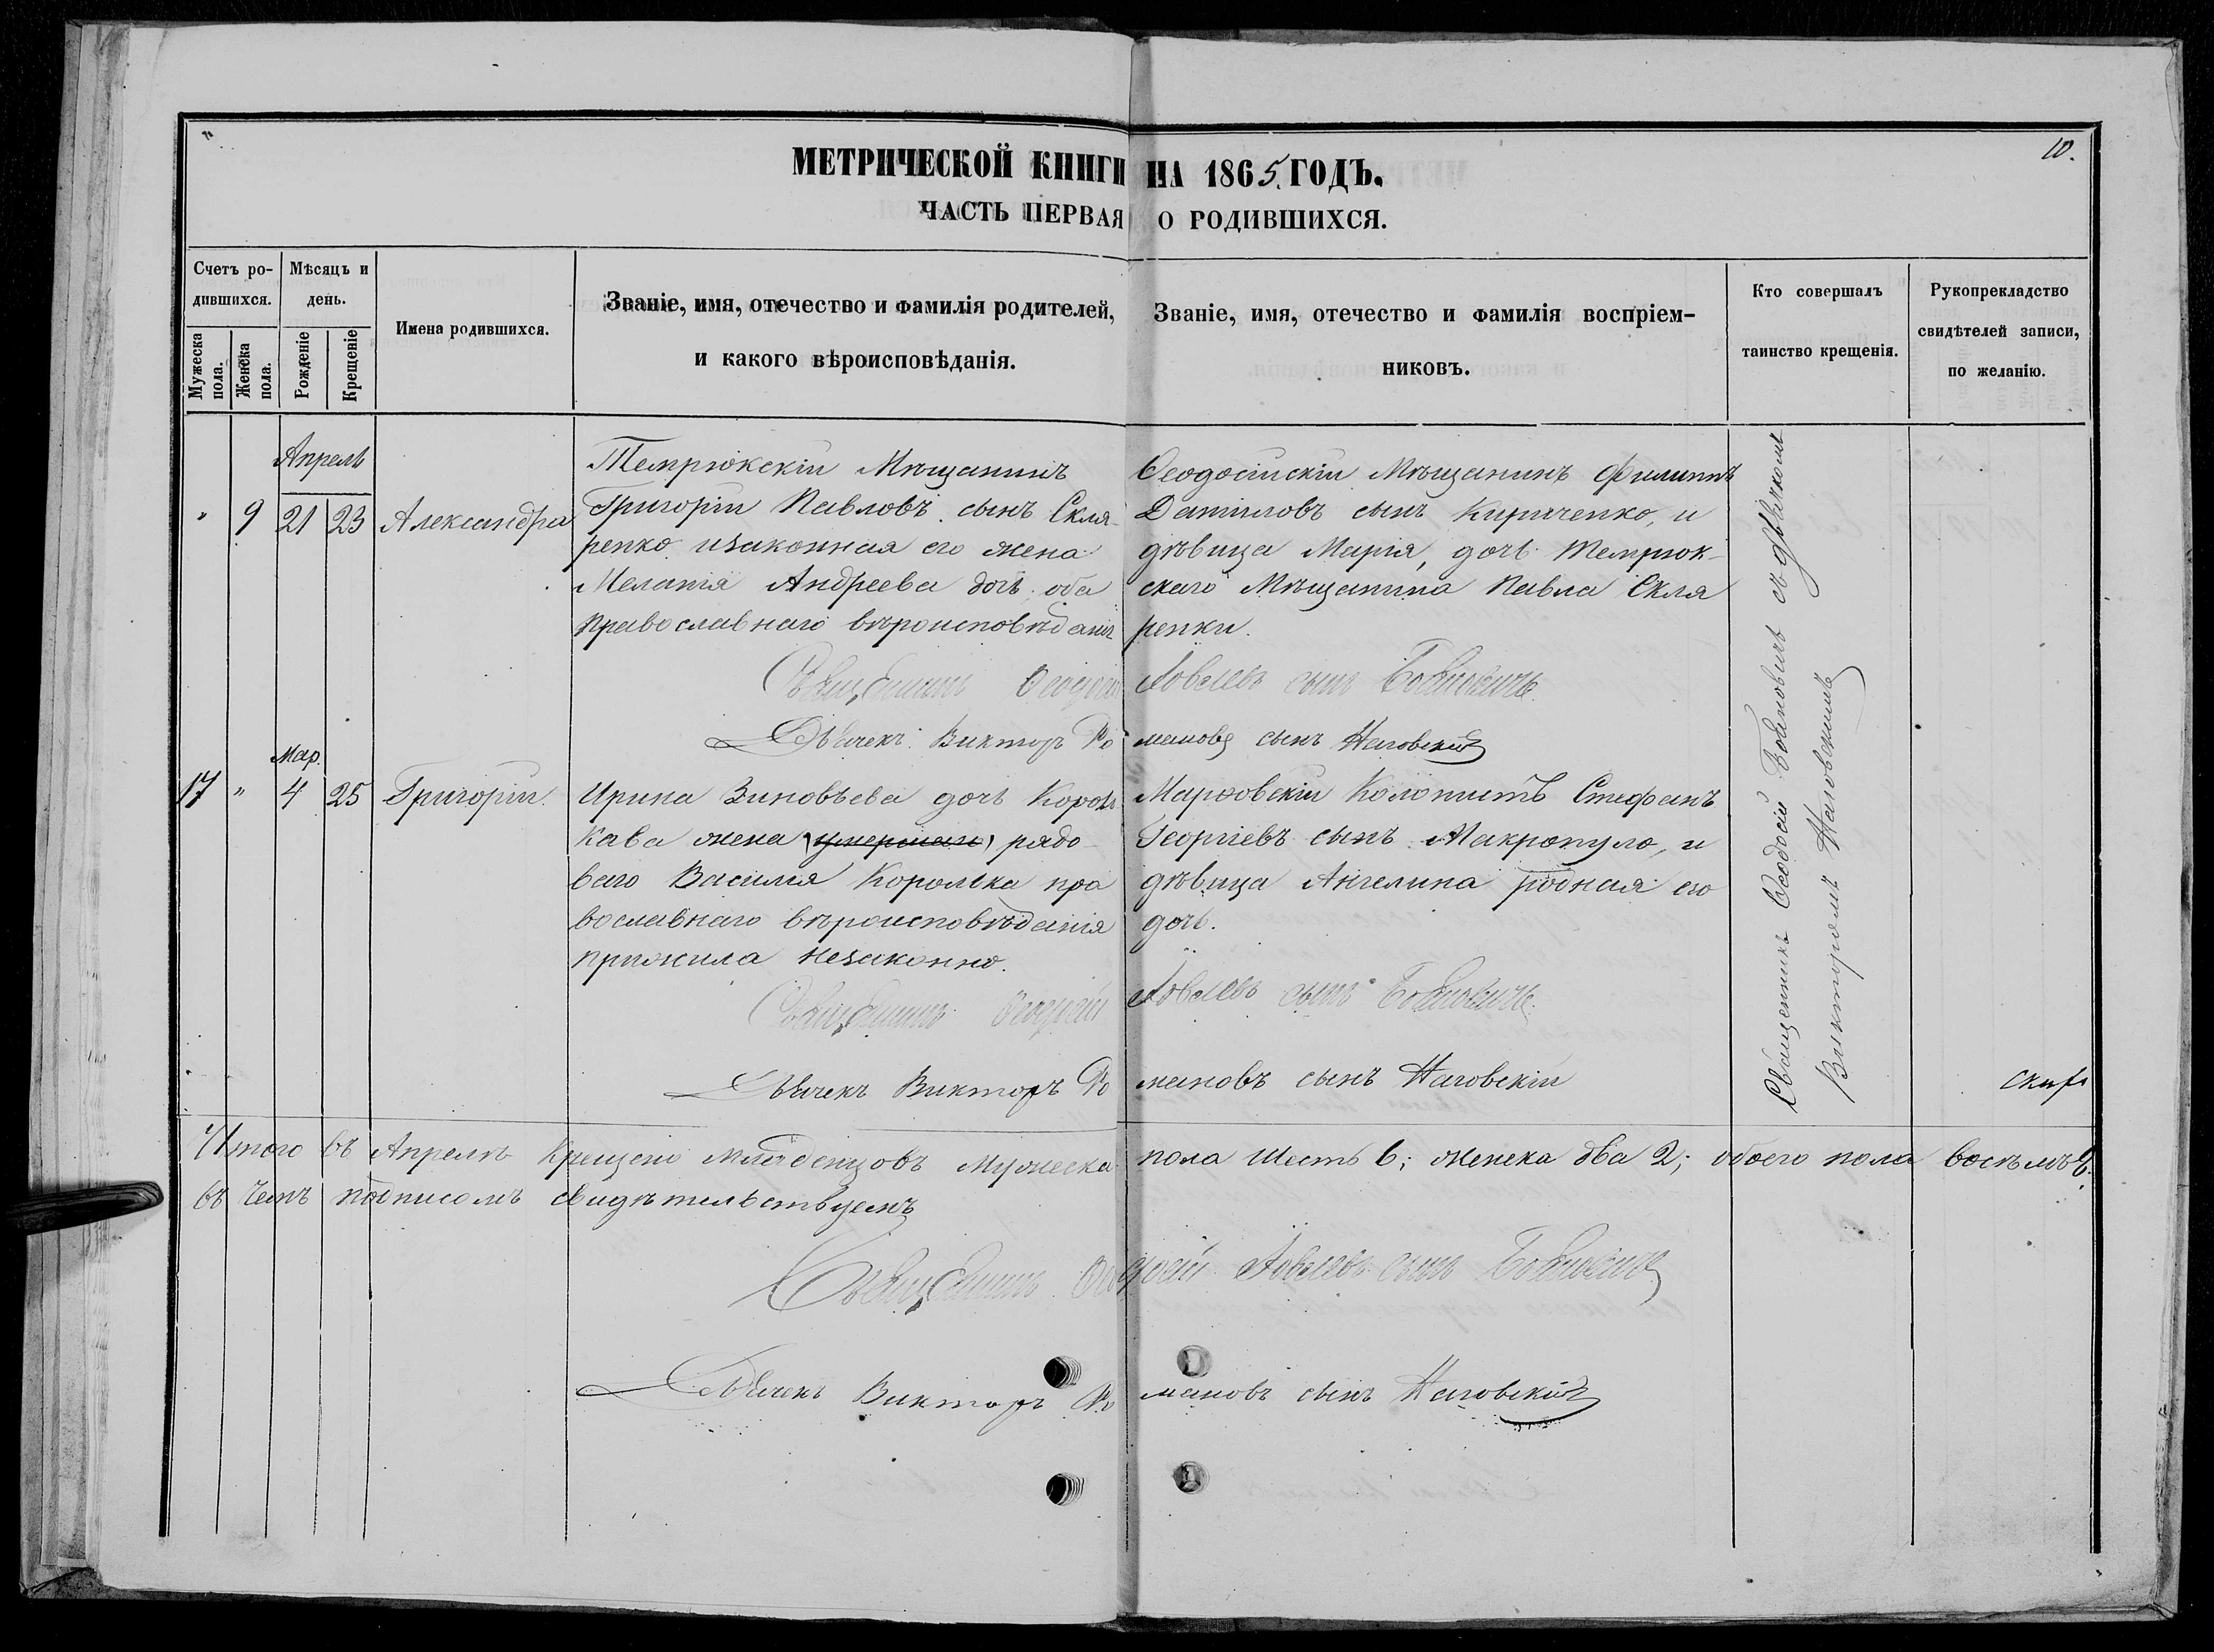 10.
МЕТРИЧЕСКОЙ КНИГИ НА 1865 ГОДЪ.
ЧАСТЬ ПЕРВАЯ О РОДИВШИХСЯ.
Счетъ ро-
дившихся.
Мужеска
пола.
Женска
пола.
Мѣсяцъ и
день.
Рожденіе
Крещеніе
Имена родившихся.
Званіе, имя, отечество и фамилія родителей,
и какого вѣроисповѣданія.
Званіе, имя, отечество и фамилія воспріем-
никовъ.
Кто совершалъ
таинство крещенія.
Рукоприкладство
свидѣтелей записи,
по желанію.
Апрель
" 9 21 23 Александра
Темрюкскій Мѣщанинъ
Григорій Павловъ сынъ Скля-
ренко изаконная его жена
Меланія Андреева дочь оба
православнаго вѣроисповѣданія
Ѳеодосійскій Мѣщанинъ Филиппъ
Даниловъ сынъ Кириченко, и
дѣвица Марія, дочь Темрюк-
скаго Мѣщанина Павла Скля
ренки.
Священникъ Ѳеодосій Іовлевъ сынъ Бойковичъ
Дьячекъ Викторъ Романовъ сынъ Наговскій
Мар.
17 " 4 25 Григорій.
Ирина Зиновьева дочь Король
кава жена умершаго рядо-
ваго Василія Королька пра
вославнаго вѣроисповѣданія
прижила незаконно.
Колонистъ Стефанъ
Георгіевъ сынъ Макропуло, и
дѣвица Ангелина родная его
дочь.
Священникъ Ѳеодосій Іовлевъ сынъ Бойковичъ
Дьячекъ Викторъ Романовъ сынъ Наговскій
Священникъ Ѳеодосій Бойковичъ съ дьячкомъ
Викторомъ Наговскимъ
Итого въ Апрелѣ крещено младенцовъ мужеска пола шесть 6; женска два 2; обоего пола восьмъ 8.
въ чемъ подписомъ свидѣтельствуемъ
Священникъ Ѳеодосій Іовлевъ сынъ Бойковичъ
Дьячекъ Викторъ Романовъ сынъ Наговскій